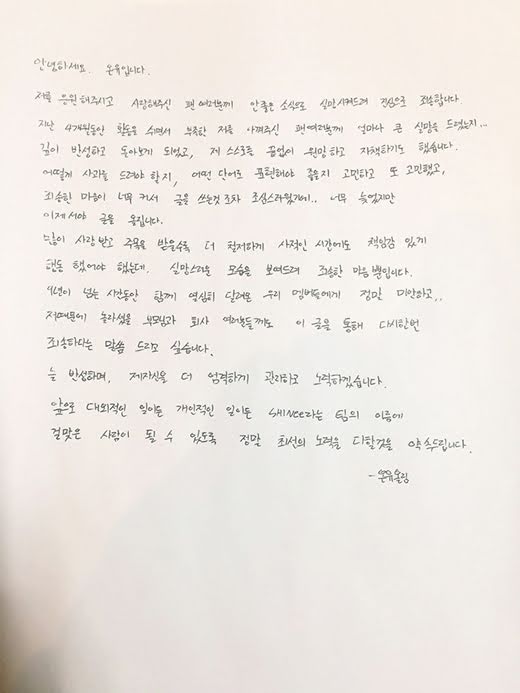 안녕하세요. 온유입니다.
저를 응원해주시고 사랑해주신 팬 여러분께 안좋은 소식으로 실망시켜드려 진심으로 죄송합니다
지난 4개월동안 활동을 쉬면서 부족한 저를 아껴주신 팬 여러분께 얼마나 큰 실망을 드렸는지...
깊이 반성하고 돌아보게 되었고, 제 스스로를 끝없이 원망하고 자책하기도 했습니다.
어떻게 사과를 드려야 할지, 어떤 단어로 표현해야 좋을지 고민하고 또 고민했고,
죄송한 마음이 너무 커서 글을 쓰는것 조차 조심스러웠기에.. 너무 늦었지만
이제서야 글을 올립니다.
많이 사랑받고 주목을 받을수록 더 철저하게 사적인 시간에도 책임감 있게
행동 했어야 했는데. 실망스러운 모습을 보여드려 죄송한 마음 뿐입니다.
9년이 넘는 시간동안 함께 열심히 달려온 우리 멤버들에게 정말 미안하고,.
저때문에 놀라셨을 부모님과 회사 여러분들께도 이 글을 통해 다시한번
죄송하다는 말씀 드리고 싶습니다.
늘 반성하며, 제자신을 더 엄격하게 관리하고 노력하겠습니다.
앞으로 대외적인 일이든 개인적인 일이든 SHINee라는 팀의 이름에
걸맞은 사람이 될 수 있도록 정말 최선의 노력을 다할것을 약속드립니다.
-온유올림